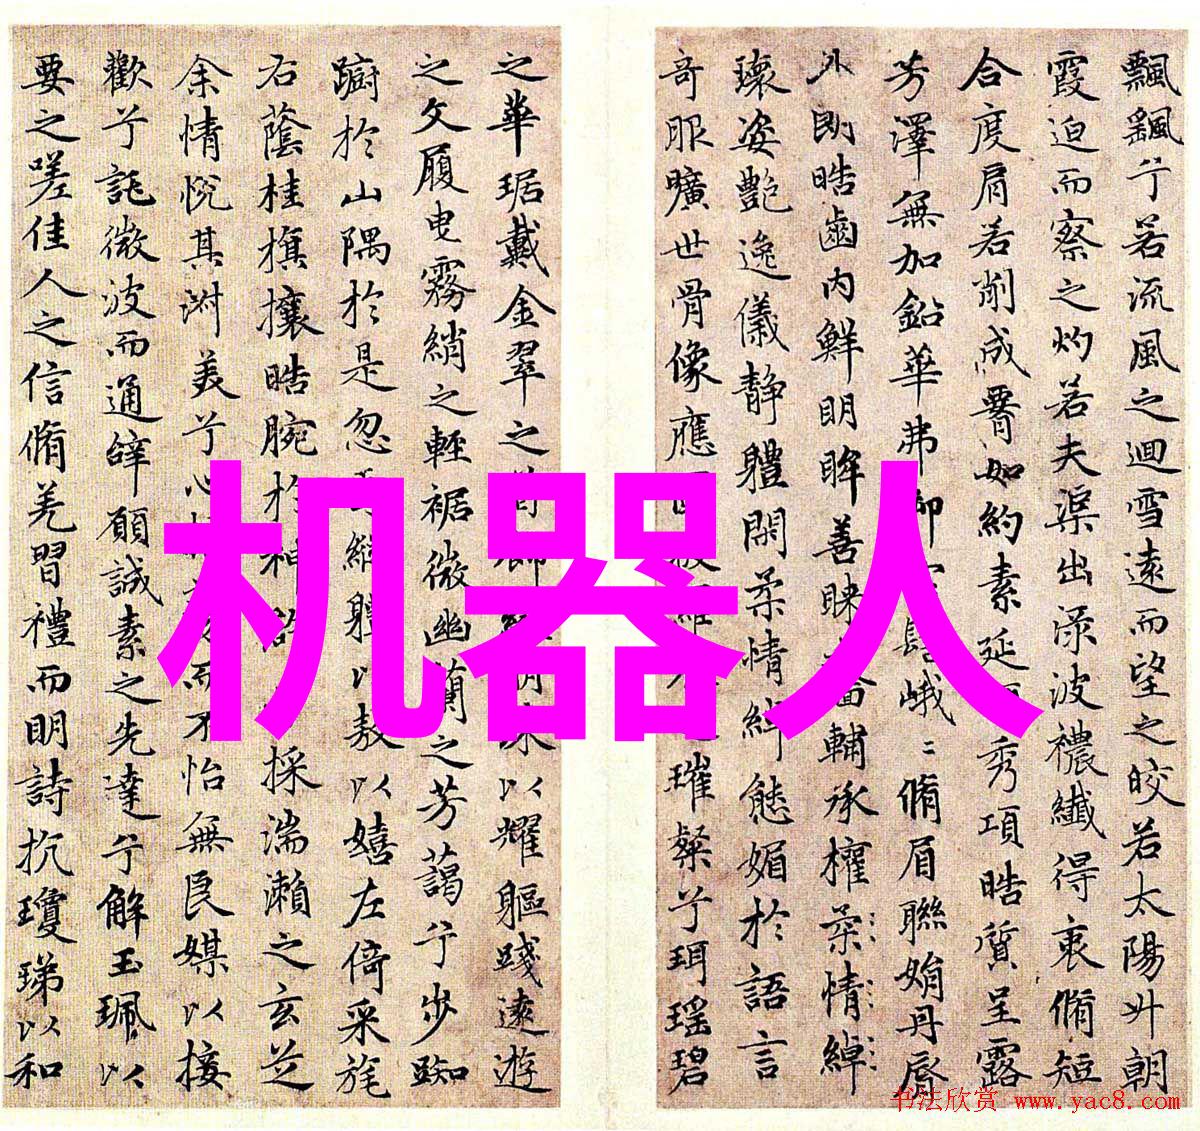 飄颻兮若流風之迴雪遠而望之皎若太陽升朝
霞迫而察之灼若夫渠出渌波襛纖得衷脩短
合度肩若削成䙅如約素延秀項晧質呈露
芳澤無加鉛華弗御髻峨〻脩眉聯娟丹脣
外朗晧齒內鮮明眸善睞輔承權柔情綽
瓌姿艷逸儀靜體閑柔情綽態媚於語言
奇服曠世骨像應璀粲兮珥瑤碧
之華琚戴金翠之首以耀軀踐遠遊
之文履曳霧綃之輕裾微幽蘭之芳藹兮步踟
躕於山隅於是忽縱體以敖以嬉左倚采旄
右蔭桂旗攘晧腕於神採湍瀨之玄芝
余情悅其淑美兮心而不怡無良媒以接
歡兮託微波而通辭願誠素之先達兮解玉珮以
要之嗟佳人之信脩羌習禮而明詩抗瓊珶以和
机器人
书法欣赏 www.yac8.com